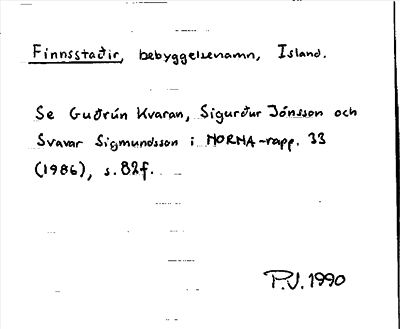 Finnsstaðir, bebyggelsenamn, Island.
Se Guðrún Kvaran, Sigurður Jónsson och
Svavar Sigmundsson i NORNA-rapp. 33
(1986), s. 82f.
P.V. 1990